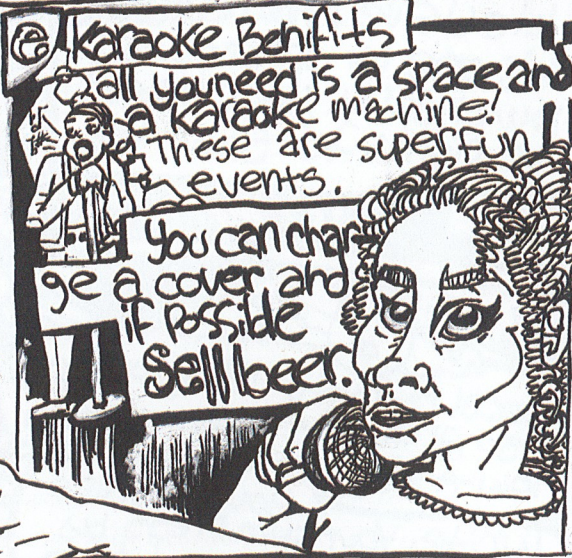 Karaoke Benifits
all you need is a space and
a karaoke machine!
These are super fun
events.
You can char-
ge a cover and
if possible
Sell beer.